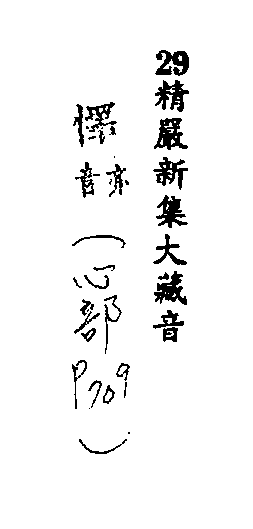 29精嚴新集大藏音
懌
亦音
(心部
P709)